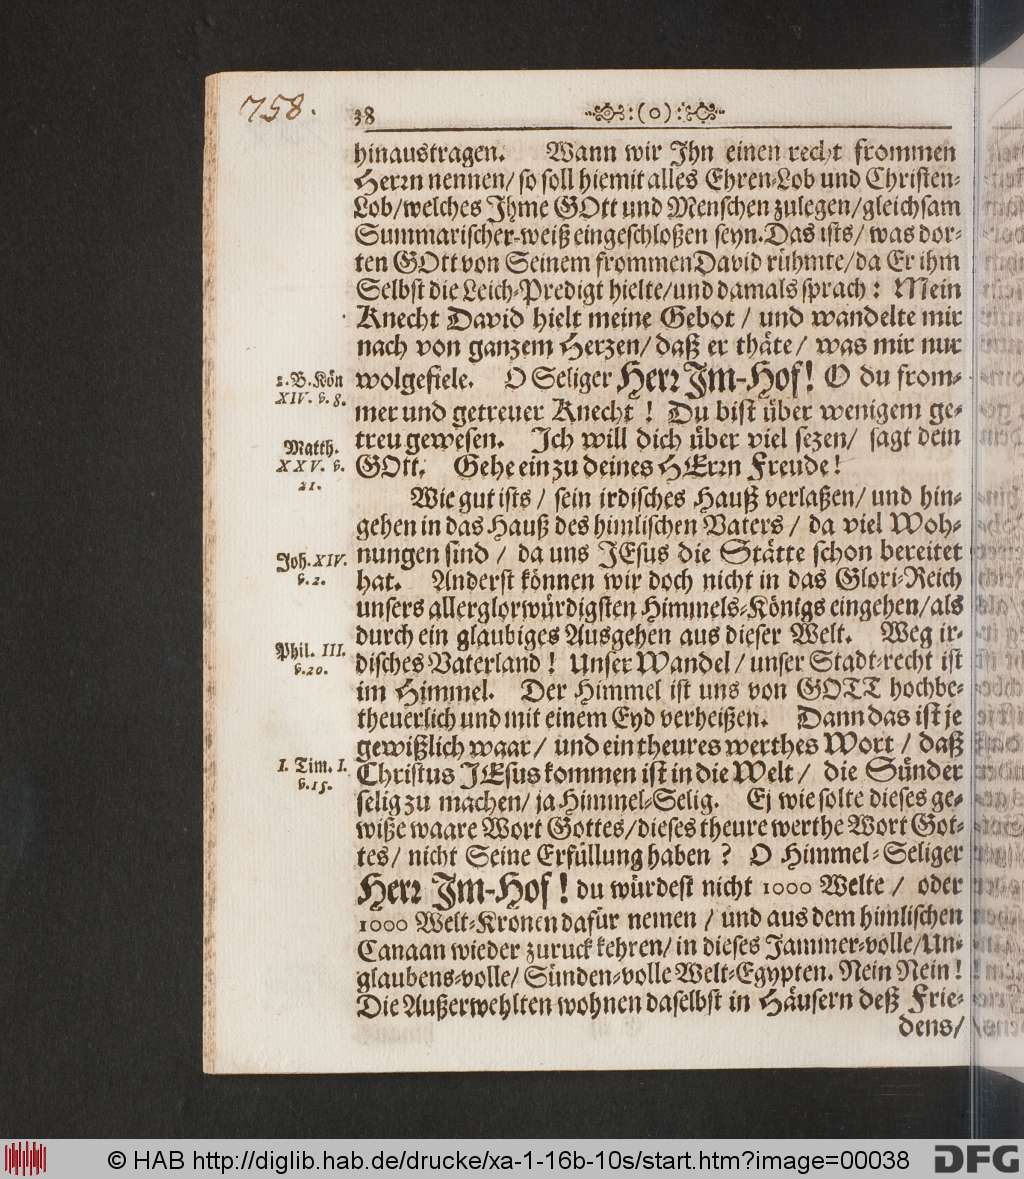 758.
38 :(o):
hinaustragen. Wann wir Ihn einen recht frommen
Herrn nennen/ so soll hiemit alles Ehren-Lob und Christen-
Lob/welches Ihme GOtt und Menschen zulegen/gleichsam
Summarischer-weiß eingeschloßen seyn. Das ists/ was dor-
ten GOtt von Seinem frommen David rühmte/da Er ihm
Selbst die Leich-Predigt hielte/und damals sprach: Mein
Knecht David hielt meine Gebot/ und wandelte mir
nach von ganzem Herzen/ daß er thäte/ was mir nur
2. B. Kön
XIV. v. 8.
wolgefiele. O Seliger Herr Im-Hof! O du from-
mer und getreuer Knecht! Du bist über wenigem ge-
Matth.
XXV. v.
21.
treu gewesen. Ich will dich über viel sezen/ sagt dein
GOtt. Gehe ein zu deines HErrn Freude!
Wie gut ists/ sein irdisches Hauß verlaßen/ und hin-
gehen in das Hauß des himlischen Vaters/ da viel Woh-
Joh. XIV.
v. 2.
nungen sind/ da uns JEsus die Stätte schon bereitet
hat. Anderst können wir doch nicht in das Glori-Reich
unsers allerglorwürdigsten Himmels-Königs eingehen/als
durch ein glaubiges Ausgehen aus dieser Welt. Weg ir-
Phil. III.
v. 20.
disches Vaterland! Unser Wandel/ unser Stadt-recht ist
im Himmel. Der Himmel ist uns von GOTT hochbe-
theuerlich und mit einem Eyd verheißen. Dann das ist je
gewißlich waar/ und ein theures werthes Wort/ daß
1. Tim. I.
v. 15.
Christus JEsus kommen ist in die Welt/ die Sünder
selig zu machen/ ja Himmel-Selig. Ej wie solte dieses ge-
wiße waare Wort Gottes/dieses theure werthe Wort Got-
tes/ nicht Seine Erfüllung haben? O Himmel-Seliger
Herr Im-Hof! du würdest nicht 1000 Welte/ oder
1000 Welt-Kronen dafür nemen/ und aus dem himlischen
Canaan wieder zuruck kehren/ in dieses Jammer-volle/Un-
glaubens-volle/ Sünden-volle Welt-Egypten. Nein Nein!
Die Außerwehlten wohnen daselbst in Häusern deß Frie-
dens/
© HAB http://diglib.hab.de/drucke/xa-1-16b-10s/start.htm?image=00038
DFG